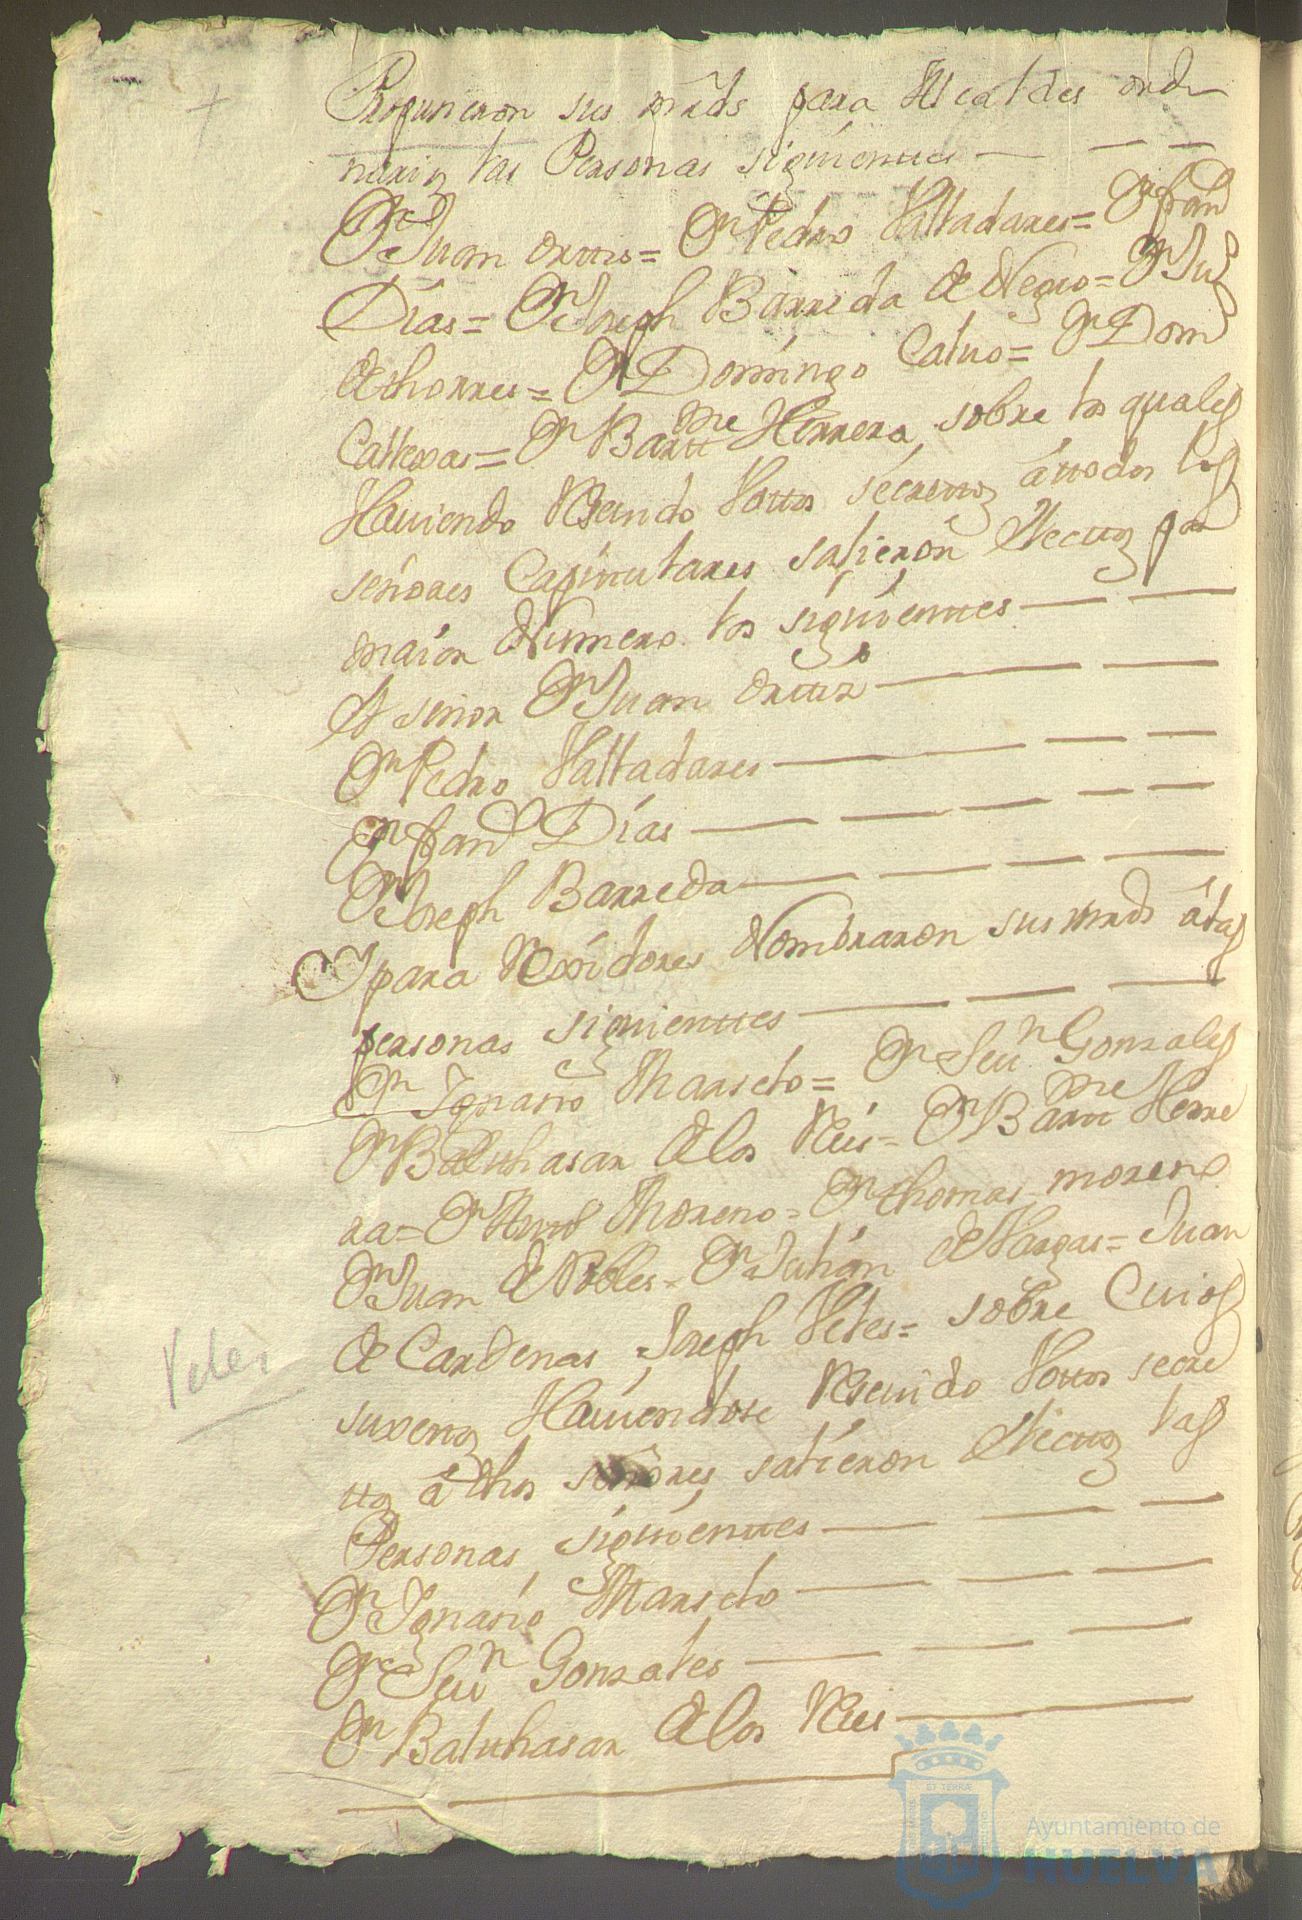 Propusieron sus mrds para Alcaldes ordi
narios las Personas siguienttes
Dn Juan Orttis = Dn Pedro Valladares = Dn fran
Días = Dn Joseph Barreda de Negro = Dn Juo
de thorres = Dn Domingo Calvo = Dn Dom
Callexas = Dn Bartt me Herrera, sobre los quales
Haviendo Resevido Vottos secrettos á ttodos los
señores Capitulares salieron Electtos por
maior Numero los siguienttes
El señor Dn Juan Orttiz
Dn Pedro Valladares
Dn fran Días
Dn Joseph Barreda
Y para Rexidores Nombraron sus mrds á las
personas siguienttes
Dn Ignasio Marselo = Dn Sevn Gonzales
Dn Balthasar de los Reis = Dn Bartt me Herre
ra = Dn Moreno = Dn thomas moreno
Dn Juan de Robles = Dn Julian de Vargas = Juan
de Cardenas = Joseph Veles = sobre Cuios
suxettos Haviendose Resevido Vottos secre
ttos á dhos señores salieron Electtos las
Personas siguienttes
Dn Ignasio Marselo
Dn Sevn Gonzales
Dn Balthasar de los Reis
Veles
Ayuntamiento de
HUELVA